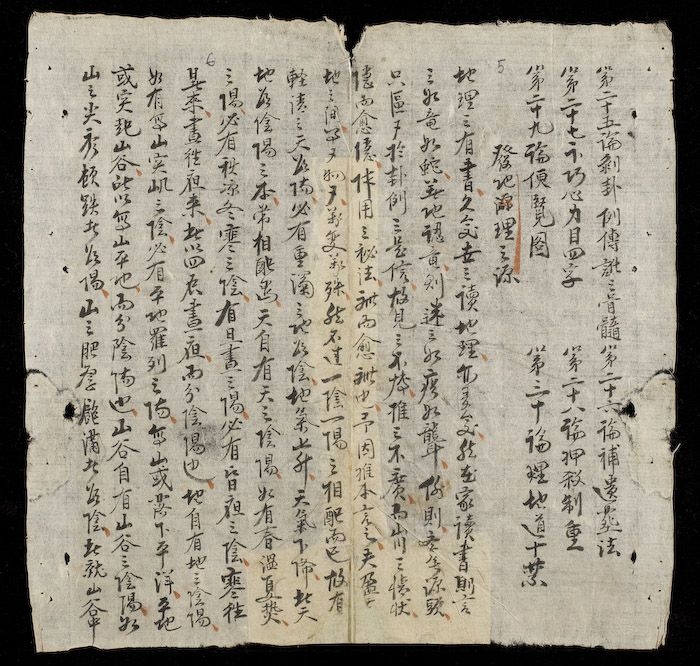 第二十五論剝卦例傳訛之骨髓 第二十六論補遺葬法
第二十七示巧心力目四字 第二十八論押殺制重
第二十九論便覽图 第三十論理地道十葉
5
發地源理之源
地理之有書久矣世之讀地理多矣然在家讀書則言
之如竜如蛇其地認山則迷之如痴如聾何則無其源頭
只區々於卦例之是信故見之不能推之不廣而山川之情狀
隱而愈隱体用之秘法泄而愈泄也予因推本言之夫盈々
地之間万々物々萬變萬殊然不过一陰一陽之相配而已故有
輕清之天為陽必有重濁之地為陰地氣上升天氣下降此天
地為陰陽之本常相配也天自有天之陰陽如有春温夏熱
之陽必有秋凉冬寒之陰有日晝之陽必有昏夜之陰寒往
6
暑來晝往夜來此以四辰晝夜而分陰陽也地自有地之陰陽
如有高山突屼之陰必有平地羅列之陽高山或落下平洋平地
或突起山谷此以高山平地而分陰陽也山谷自有山谷之陰陽如
山之尖秀頓跌者為陽山之肥厚飽滿者為陰此就山谷中